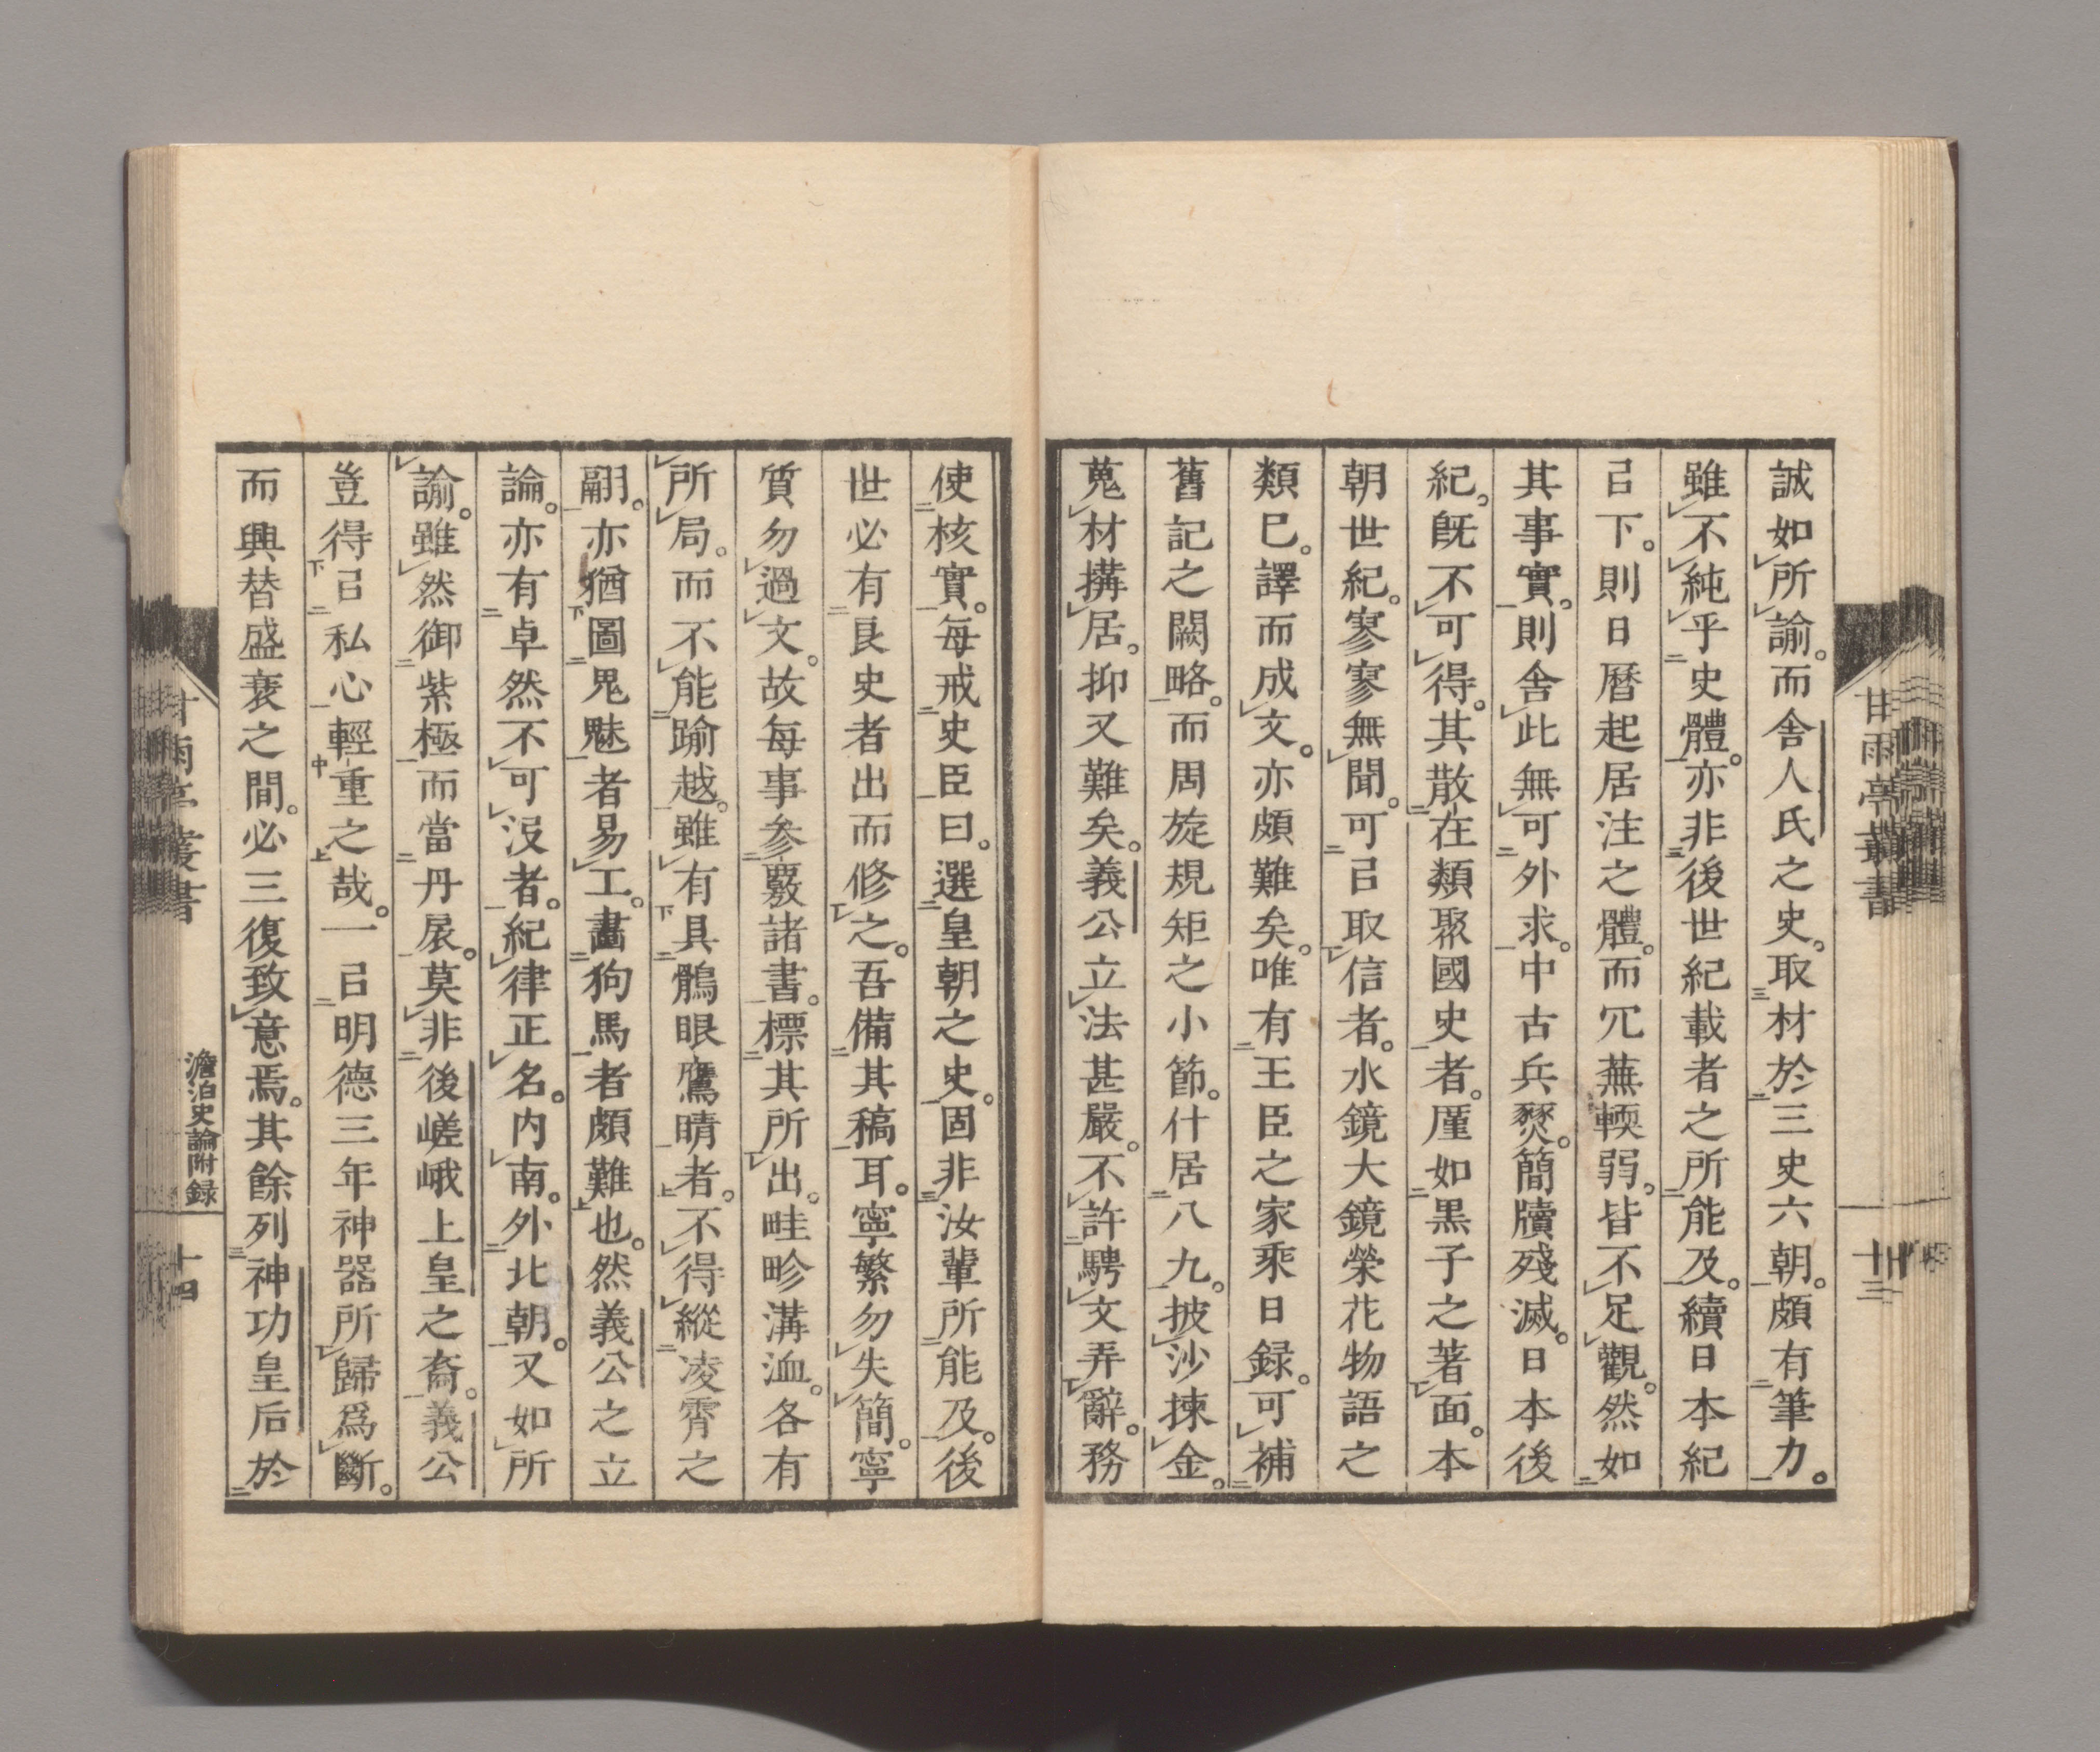 誠如所諭。而舍人氏之史。取材於三史六朝。頗有筆力。
雖不純乎史體。亦非後世紀載者之所能及。續日本紀
㠯下。則日曆起居注之體。而冗蕪輭弱。皆不足觀。然如
其事實。則舍此無可外求。中古兵燹。簡牘殘滅。日本後
紀。旣不可得。其散在類聚國史者。厪如黒子之著面。本
朝世紀。寥寥無聞。可㠯取信者。水鏡大鏡榮花物語之
類已。譯而成文。亦頗難矣。唯有王臣之家乘日録。可補
舊記之闕略。而周旋規矩之小節。什居八九。披沙揀金。
蒐材搆居。抑又難矣。義公立法甚嚴。不許騁文弄辭。務
使核實。每戒史臣曰。選皇朝之史。固非汝輩所能及。後
世必有良史者出而修之。吾備其稿耳。寧繁勿失簡。寧
質勿過文。故每事參覈諸書。標其所出。畦畛溝洫。各有
所局。而不能踰越。雖有具鶻眼鷹睛者。不得縱凌霄之
翮。亦猶圖鬼魅者易工。畵狗馬者頗難也。然義公之立
論。亦有卓然不可沒者。紀律正名。内南。外北朝。又如所
諭。雖然御紫極而當丹扆。莫非後嵯峨上皇之裔。義公
豈得㠯私心輕重之哉。一㠯明德三年神器所歸爲斷。
而興替盛衰之間。必三復致意焉。其餘列神功皇后於
甘雨亭叢書
十三
甘雨亭叢書
澹泊史論附録
十四